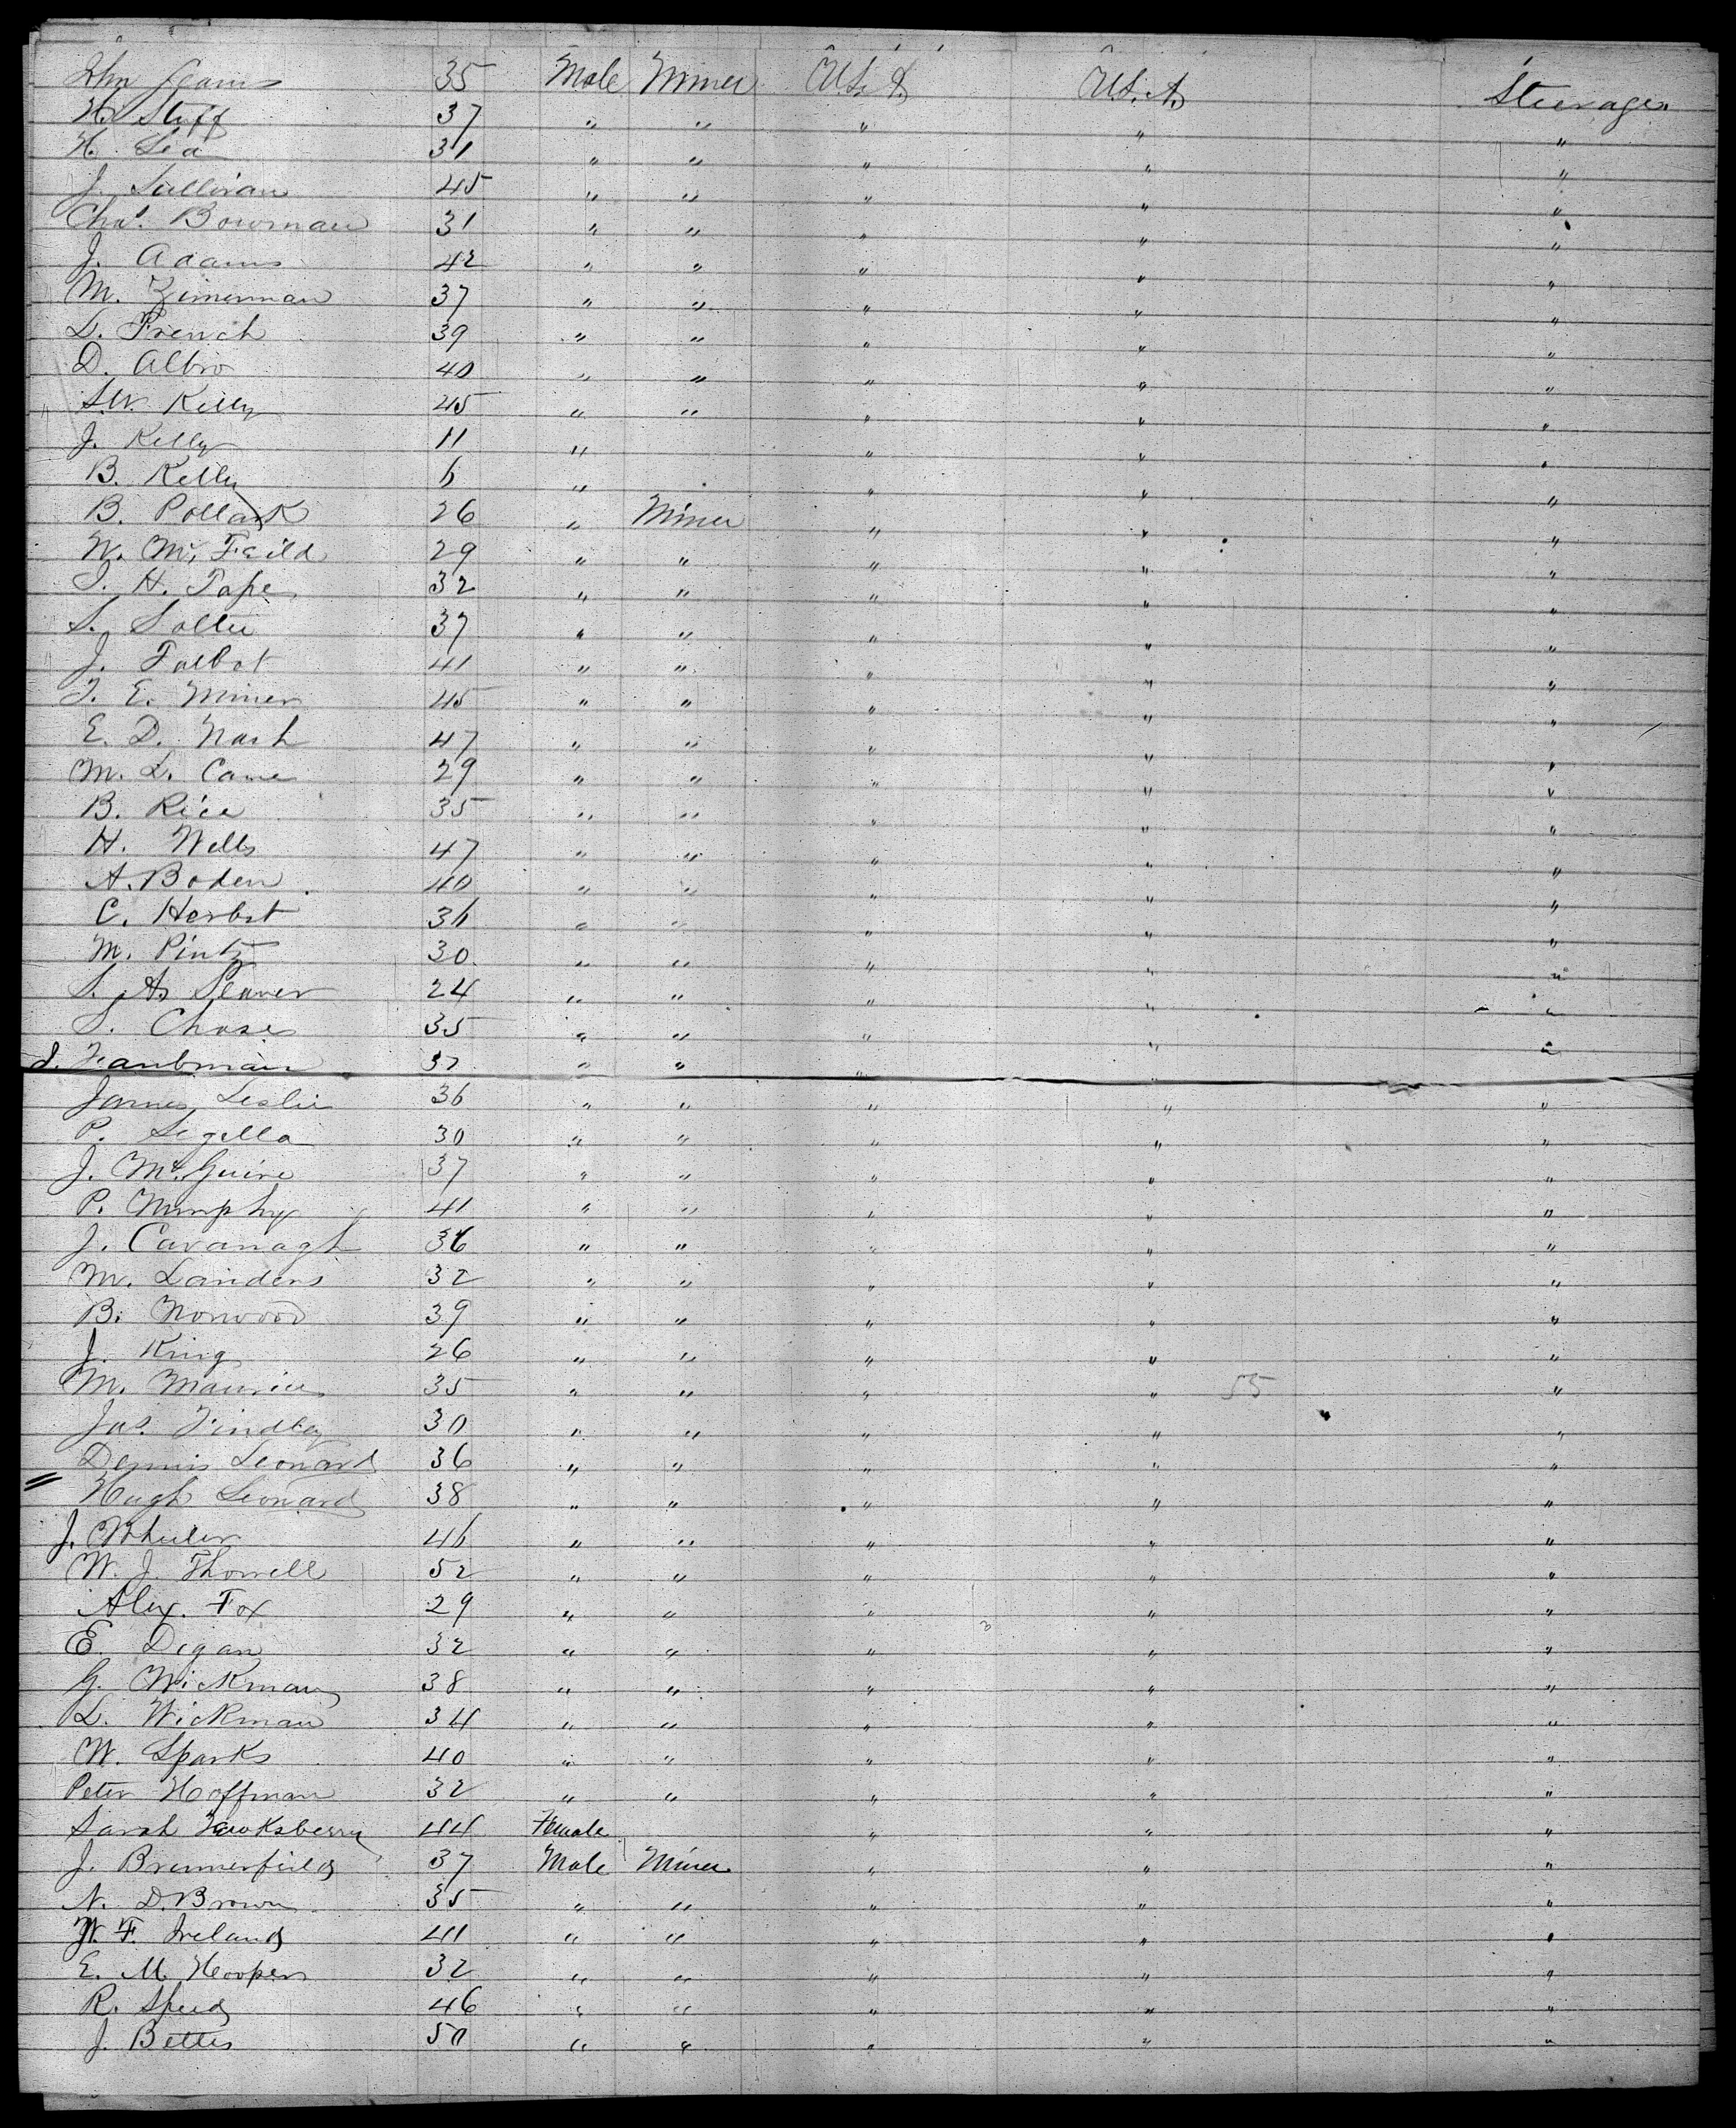 Jno Jeams 35 Male Miner U.S.A. U.S.A. Steerage
H. Stuff 37 " " " " "
H. Lea 31 " " " " "
J. Sullivan 45 " " " " "
Chas. Bowman 31 " " " " "
J. Adams 42 " " " " "
M. Zimerman 37 " " " " "
L. French 39 " " " " "
D. Albro 40 " " " " "
S.W. Kelly 45 " " " " "
J. Kelly 11 " " " "
B. Kelly 6 " " " "
B. Pollark 26 " Miner " " "
W. Mc Faild 29 " " " " "
S. H. Pape 32 " " " " "
S. Soltee 37 " " " " "
J. Talbot 41 " " " " "
T. E. Miner 45 " " " " "
E. D. Nash 47 " " " " "
M. L. Cane 29 " " " " "
B. Rice 35 " " " " "
H. Wells 47 " " " " "
A. Boden 40 " " " " "
C. Herbst 36 " " " " "
M. Pintz 30 " " " " "
S. A. Seaver 24 " " " " "
S. Chase 35 " " " " "
J. Faubman 37 " " " " "
James Leslie 36 " " " " "
P. Segella 30 " " " " "
J. McGuire 37 " " " " "
P. Murphy 41 " " " " "
J. Cavanagh 36 " " " " "
M. Landers 32 " " " " "
B. Norwood 39 " " " " "
J. King 26 " " " " "
M. Maurice 35 " " " " 55 "
Jas. Findley 30 " " " " "
Dennis Leonard 36 " " " " "
Hugh Leonard 38 " " " " "
J. Wheeler 46 " " " " "
W. J. Thorrell 52 " " " " "
Alex. Fox 29 " " " " "
E. Digan 32 " " " " "
G. Wickman 38 " " " " "
L. Wickman 34 " " " " "
W. Sparks 40 " " " " "
Peter Hoffman 32 " " " " "
Sarah Hawksberry 44 Female " " "
J. Brumerfield 37 Male Miner " " "
N. D. Brown 35 " " " " "
W. F. Ireland 41 " " " " "
E. M. Hooper 32 " " " " "
R. Speed 46 " " " " "
J. Bettes 50 " " " " "